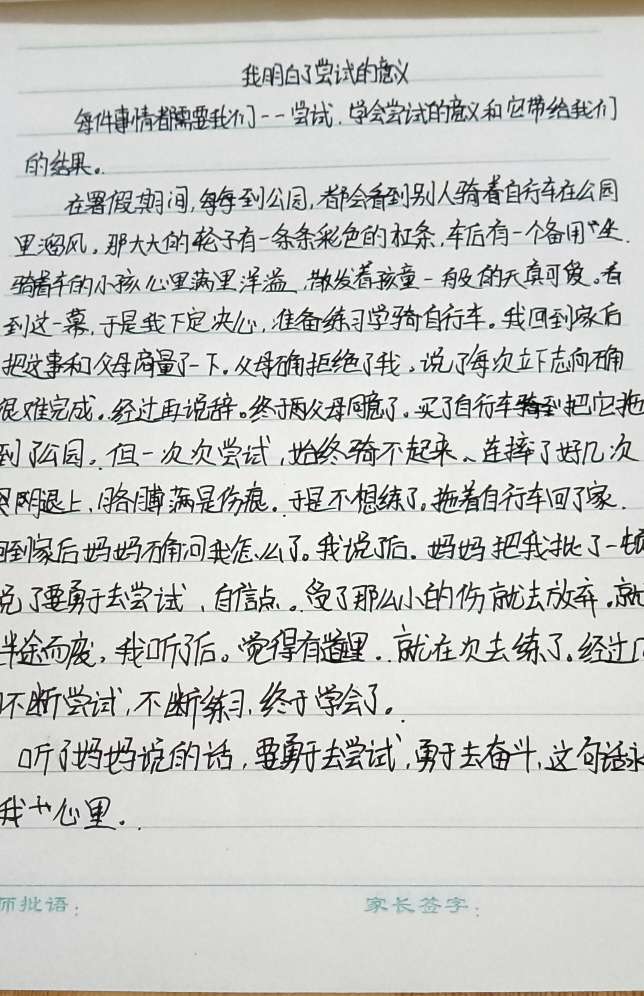 我明白了尝试的意义
每件事情都需要我们一一尝试.学会尝试的意义和它带给我们
的结果。
在署假期间,每每到公园,都会看到别人骑着自行车在公园
里溜风,那大大的轮子有一条条彩色的杠条,车后有一个备用坐.
骑着车的小孩心里满里洋溢,散发着孩童一般的天真可爱。看
到这一幕,于是我下定决心,准备练习学骑自行车。我回到家后
把这事和父母商量了一下。父母确拒绝了我,说了每次立下志向确
很难完成。经过再说辞。终于两父母同意了。买了自行车把它拖
到了公园。但一次次尝试,始终骑不起来、连摔了好几次
腿上,胳膊满是伤痕.于是不想练了。拖着自行车回了家.
回到家后妈妈确问我怎么了。我说了后.妈妈把我批了一顿
说了要勇于去尝试、自信点。受了那么小的伤就去放弃.就
半途而废,我听了后。觉得有道理.就在次去练了。经过
不断尝试,不断练习,终于学会了。
听了妈妈说的话,要勇于去尝试,勇于去奋斗,这句话永
我心里.
师批语: 家长签字: